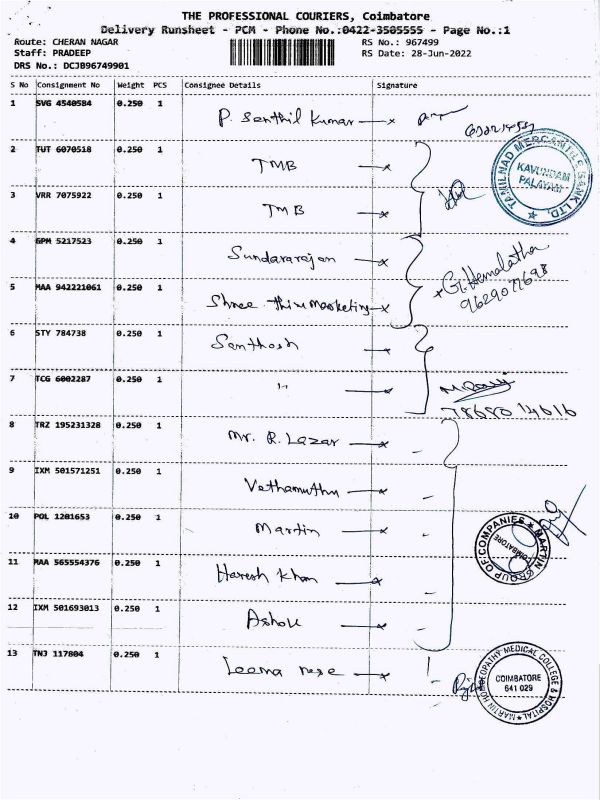 THE PROFESSIONAL COURIERS, Coimbatore
Delivery Runsheet - PCM - Phone No.:0422-3505555 - Page No.:1
Route: CHERAN NAGAR RS No.: 967499
Staff: PRADEEP RS Date: 28-Jun-2022
DRS No.: DCJB96749901
S No Consignment No Weight PCS Consignee Details Signature
1 SVG 4540584 0.250 1 P. Senthil Kumar
2 TUT 6070518 0.250 1 TMB
TAMILNAD MERCANTILE BANK LTD.
KAVUNDAM
PALAYAM
3 VRR 7075922 0.250 1 TMB
4 GPM 5217523 0.250 1 Sundararajan
G. Hemalatha
5 MAA 942221061 0.250 1 Shree Thiru Marketing
6 STY 784738 0.250 1 Santhosh
7 TCG 6002287 0.250 1 "
78680 14616
8 TRZ 195231328 0.250 1 Mr. R. Lazar
9 IXM 501571251 0.250 1 Vethamuthu
10 POL 1201653 0.250 1 Martin
MARTIN GROUP OF COMPANIES
COIMBATORE
11 MAA 565554376 0.250 1 Haresh Khan
12 IXM 501693013 0.250 1 Ashok
13 TNJ 117804 0.250 1 Leema rose
MARTIN HOMOEOPATHY MEDICAL COLLEGE & HOSPITAL
COIMBATORE
641 029